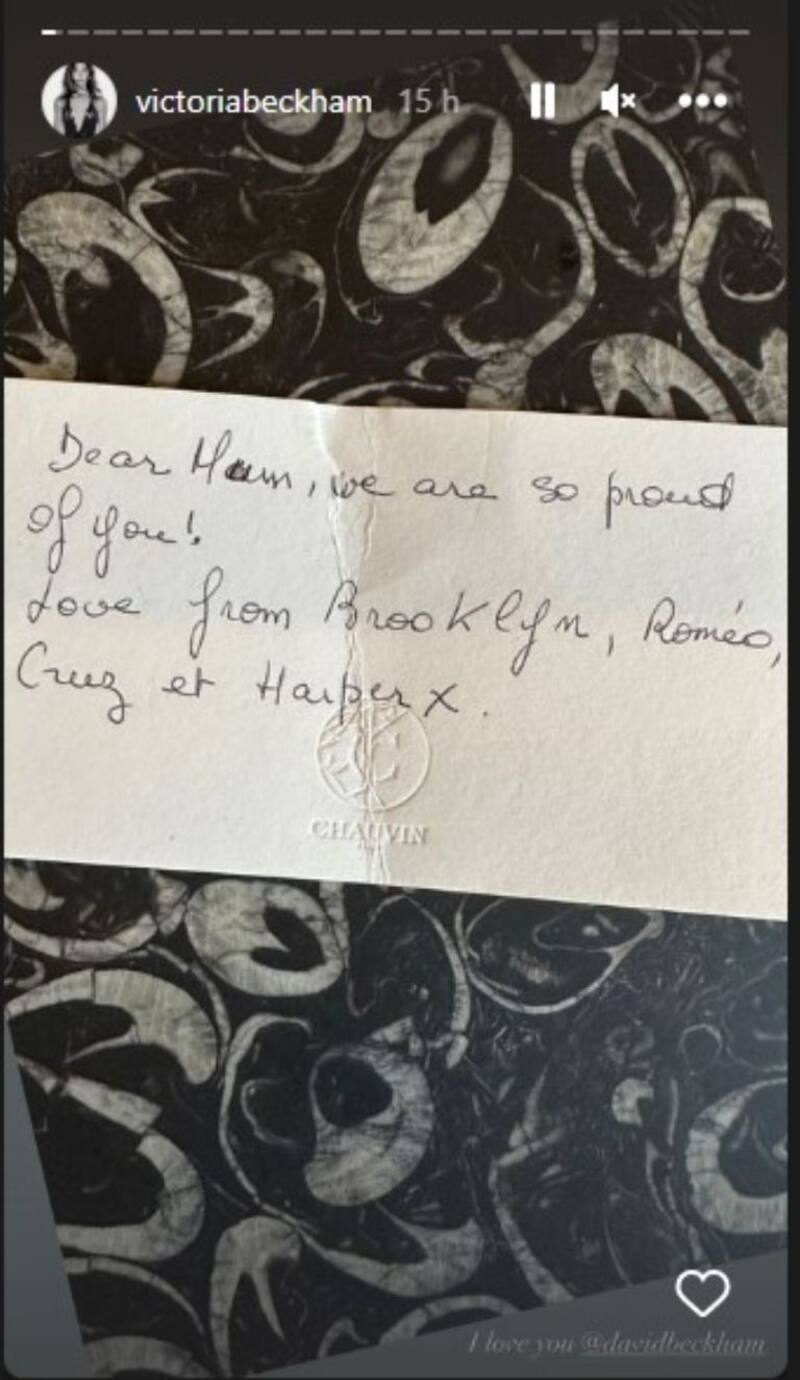 victoriabeckham 15 h
Dear Mum, we are so proud
of you!
Love from Brooklyn, Roméo,
Cruz et Harper x.
CHAUVIN
I love you @davidbeckham